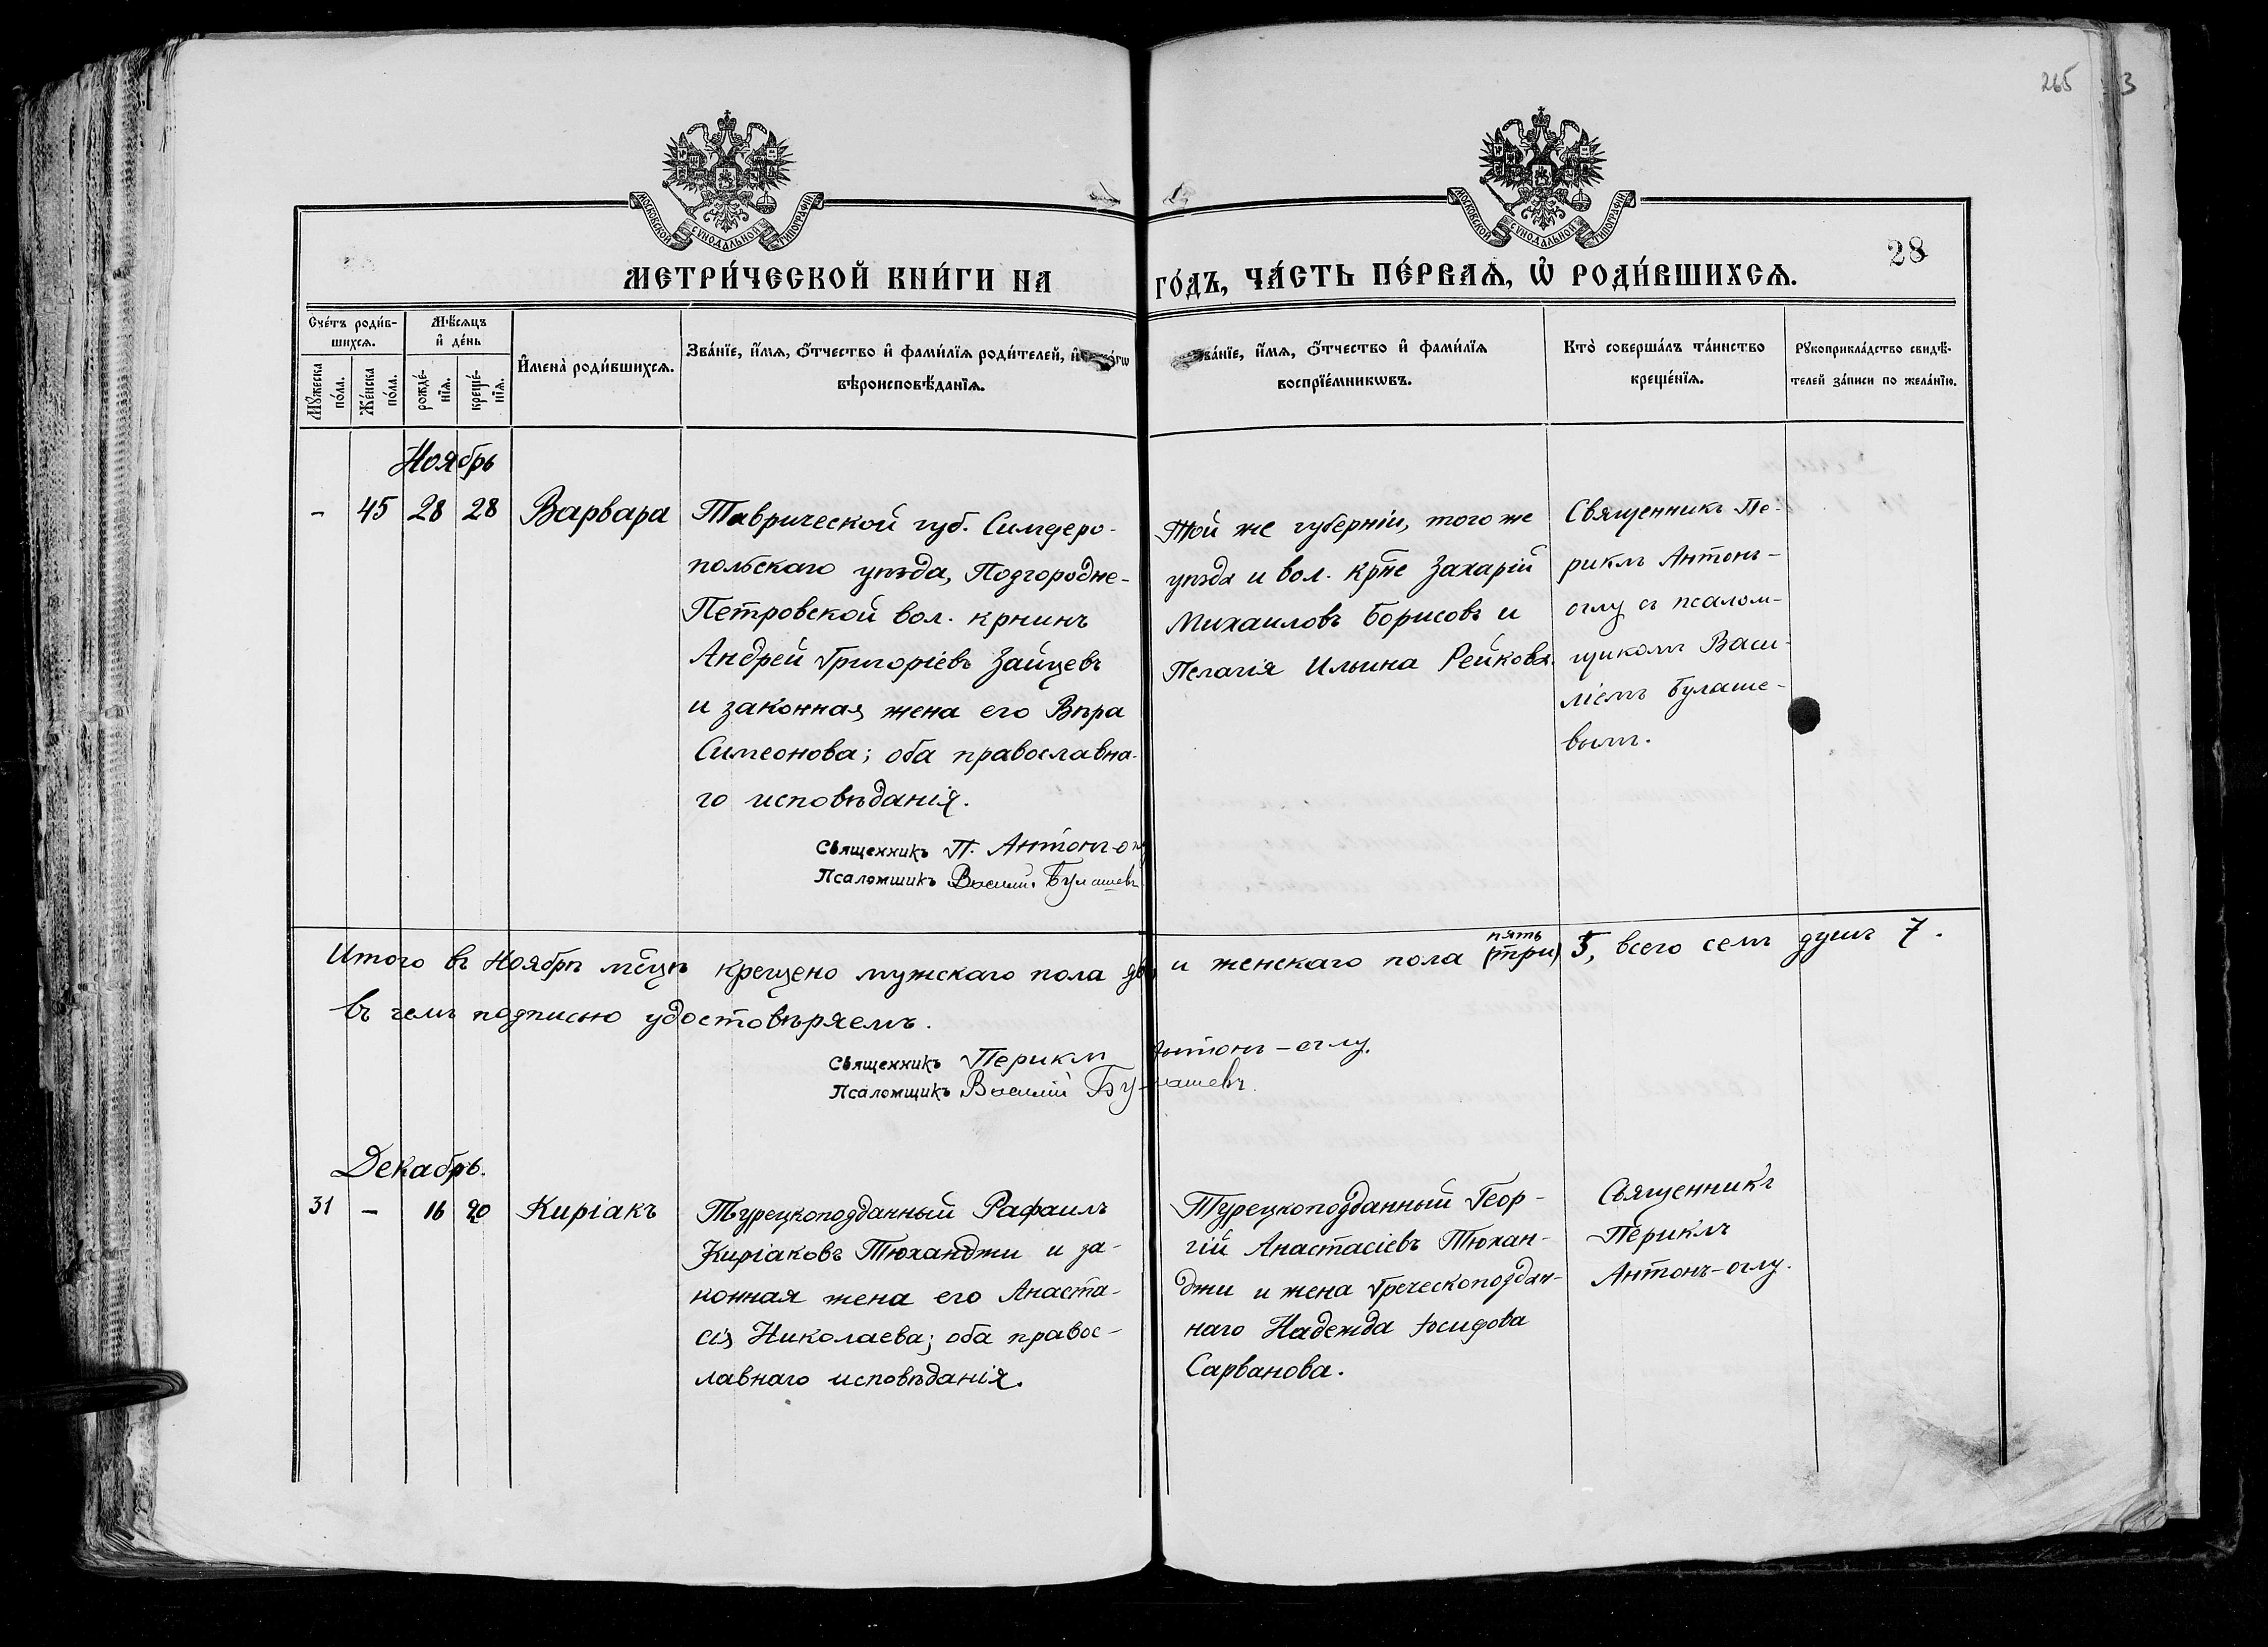 265 3
МОСКОВСКОЙ СѴНОДАЛЬНОЙ ТИПОГРАФІИ
МОСКОВСКОЙ СѴНОДАЛЬНОЙ ТИПОГРАФІИ
28
МЕТРИ́ЧЕСКОЙ КНИ́ГИ НА ГО́ДЪ, ЧА́СТЬ ПЕ́РВАѦ, Ѽ РОДИ́ВШИХСѦ.
Сче́тъ роди́в-
шихсѧ.
Мꙋ́жеска
по́ла.
Же́нска
по́ла.
Мѣ́сѧцъ
и҆ де́нь
рожде́-
нїѧ.
креще́-
нїѧ.
И҆мена̀ роди́вшихсѧ.
Зва́нїе, и҆́мѧ, ѻ҆́тчество и҆ фами́лїѧ роди́телей, и҆
вѣроисповѣ́данїѧ.
Зва́нїе, и҆́мѧ, ѻ҆́тчество и҆ фами́лїѧ
воспрїе́мникѡвъ.
Кто̀ соверша́лъ та́инство
креще́нїѧ.
Рꙋкоприкла́дство свидѣ́-
телей за́писи по жела́нїю.
Ноябрь
- 45 28 28 Варвара
Таврической губ. Симферо-
польскаго уѣзда, Подгородне-
Петровской вол. крнинъ
Андрей Григоріевъ Зайцевъ
и законная жена его Вѣра
Симеонова; оба православна-
го исповѣданія.
Той же губерніи, того же
уѣзда и вол. крне Захарій
Михаиловъ Борисовъ и
Пелагія Ильина Рейкова.
Священникъ Пе-
риклъ Антонъ-
оглу съ псалом-
щикомъ Васи-
ліемъ Булаше-
вымъ.
Священникъ П. Антонъ-
Псаломщикъ Василій Булашевъ
Итого въ Ноябрѣ мѣцѣ крещено мужскаго пола два и женскаго пола (три) пять 5, всего семь душъ 7.
въ чемъ подписью удостовѣряемъ.
Священникъ Периклъ Антонъ-оглу.
Псаломщикъ Василій Булашевъ.
Декабрь.
31 - 16 20 Киріакъ
Турецкоподданный Рафаилъ
Киріаковъ Тюханджи и за-
конная жена его Анаста-
сія Николаева; оба правос-
лавнаго исповѣданія.
Турецкоподданный Геор-
гій Анастасіевъ Тюхан-
джи и жена греческоподдан-
наго Надежда
Сарванова.
Священникъ
Периклъ
Антонъ-оглу.